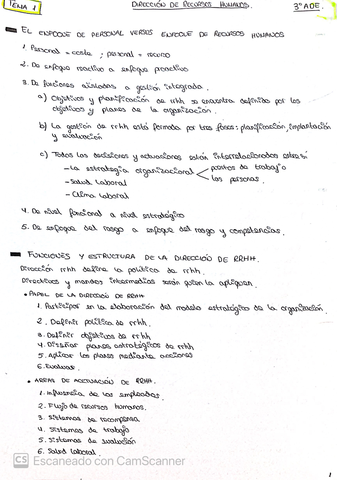 TEMA 1
DIRECCIÓN DE RECURSOS HUMANOS.
3º ADE.
EL ENFOQUE DE PERSONAL VERSUS ENFOQUE DE RECURSOS HUMANOS
1. Personal = coste ; personal = recurso
2. De enfoque reactivo a enfoque proactivo
3. De funciones aisladas a gestión integrada.
a) Objetivos y planificación de rrhh se encuentra definida por los
objetivos y planes de la organización.
b) La gestión de rrhh está formada por tres fases: planificación, implantación
y evaluación
c) Todas las decisiones y actuaciones están interrelacionadas entre sí
- La estrategia organizacional
puestos de trabajo
las personas.
- Salud laboral
- Clima laboral
4. De nivel funcional a nivel estratégico
5. De enfoque del rasgo a enfoque del rasgo y competencias.
FUNCIONES Y ESTRUCTURA DE LA DIRECCIÓN DE RRHH.
Dirección rrhh define la política de rrhh.
Directivos y mandos intermedios serán quien la apliquen.
• PAPEL DE LA DIRECCIÓN DE RRHH
1. Participar en la elaboración del modelo estratégico de la organización.
2. Definir política de rrhh.
3. Definir objetivos de rrhh
4. Diseñar planes estratégicos de rrhh
5. Aplicar los planes mediante acciones
6. Evaluar.
• AREAS DE ACTUACIÓN DE RRHH.
1. Influencia de los empleados.
2. Flujo de recursos humanos.
3. Sistemas de recompensa
4. Sistemas de trabajo
5. Sistemas de evaluación
6. Salud laboral.
CS Escaneado con CamScanner
1